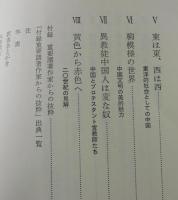 V 東は東、西は西
東洋的社会としての中国
VI 駒模様の世界
中国文明の美的魅力
VII 異教徒中国人は変な奴……
中国とプロテスタント宣教師たち
VIII 黄色から赤色へ
二〇世紀の見解
付録 重要関連著作家からの抜粋
「付録重要関連著作家からの抜粋」出典一覧
注